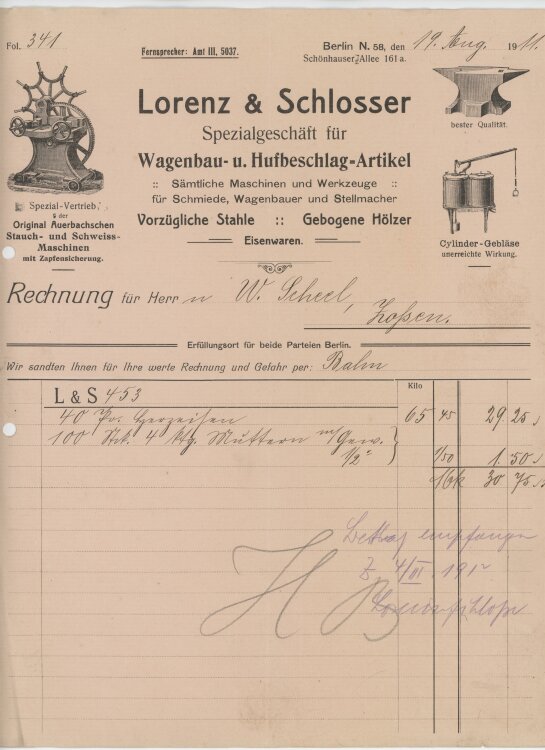 Fol. 341
Fernsprecher: Amt III, 5037.
Berlin N. 58, den 19. Aug. 1911.
Schönhauser Allee 161 a.
Lorenz & Schlosser
Spezialgeschäft für
Wagenbau- u. Hufbeschlag-Artikel
:: Sämtliche Maschinen und Werkzeuge ::
für Schmiede, Wagenbauer und Stellmacher
Vorzügliche Stahle :: Gebogene Hölzer
Eisenwaren.
Spezial-Vertrieb
der
Original Auerbachschen
Stauch- und Schweiss-
Maschinen
mit Zapfensicherung.
bester Qualität.
Cylinder-Gebläse
unerreichte Wirkung.
Rechnung für Herrn W. Scheel,
Zossen.
Erfüllungsort für beide Parteien Berlin.
Wir sandten Ihnen für Ihre werte Rechnung und Gefahr per: Bahn
Kilo
L & S 453
40 65 45 29.25
100 Stck. 4 ktg. Muttern m/Gew. 1/2" 1/50 1.50
Mk 30 75
Betrag empfangen
Z. 4/III. 1912
Lorenz & Schlosser